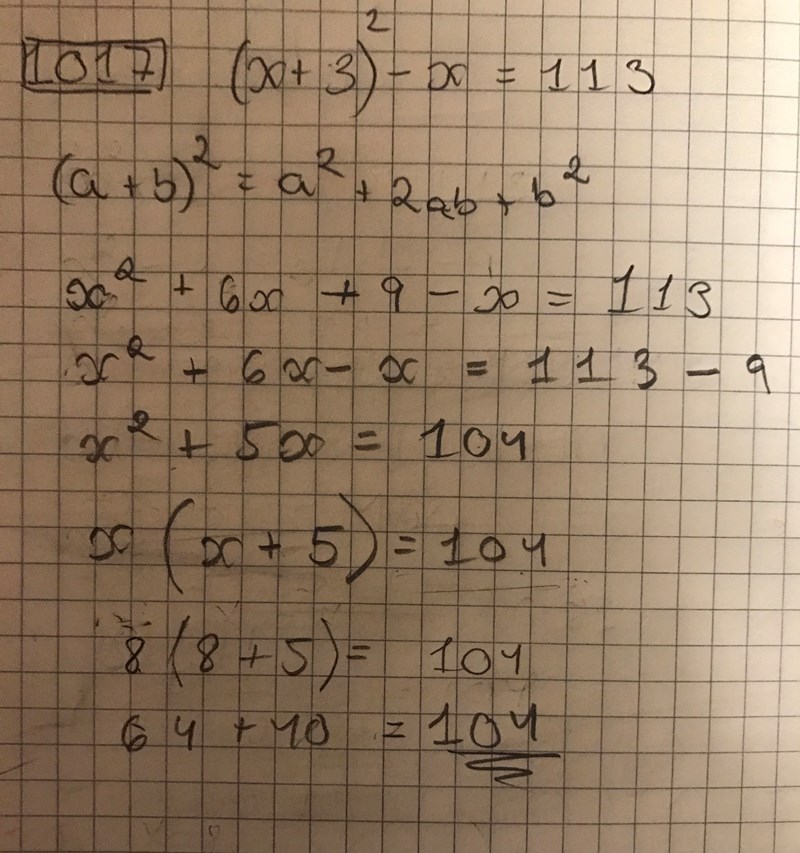 1017 (x+3)² - x = 113
(a+b)² = a² + 2ab + b²
x² + 6x + 9 - x = 113
x² + 6x - x = 113 - 9
x² + 5x = 104
x(x+5) = 104
8(8+5) = 104
64 + 40 = 104